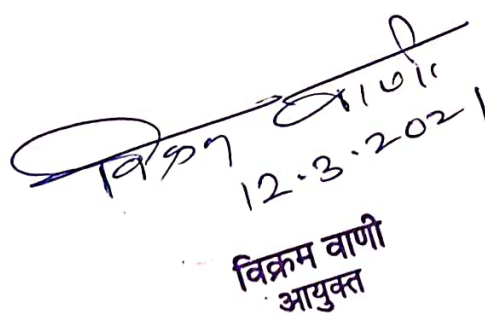 विक्रम वाणी
12.3.2021
विक्रम वाणी
आयुक्त